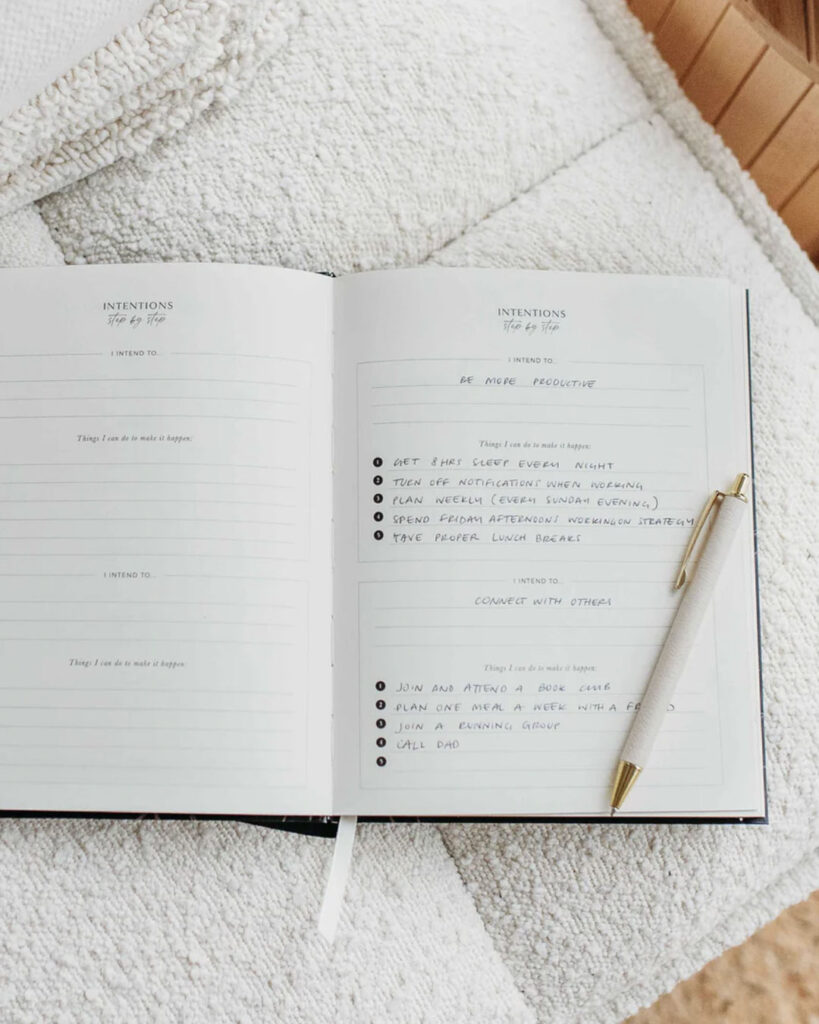 INTENTIONS
step by step
I INTEND TO...
Things I can do to make it happen:
I INTEND TO...
Things I can do to make it happen:
INTENTIONS
step by step
I INTEND TO...
BE MORE PRODUCTIVE
Things I can do to make it happen:
1 GET 8 HRS SLEEP EVERY NIGHT
2 TURN OFF NOTIFICATIONS WHEN WORKING
3 PLAN WEEKLY (EVERY SUNDAY EVENING)
4 SPEND FRIDAY AFTERNOONS WORKING ON STRATEGY
5 TAVE PROPER LUNCH BREAKS
I INTEND TO...
CONNECT WITH OTHERS
Things I can do to make it happen:
1 JOIN AND ATTEND A BOOK CLUB
2 PLAN ONE MEAL A WEEK WITH A
3 JOIN A RUNNING GROUP
4 CALL DAD
5